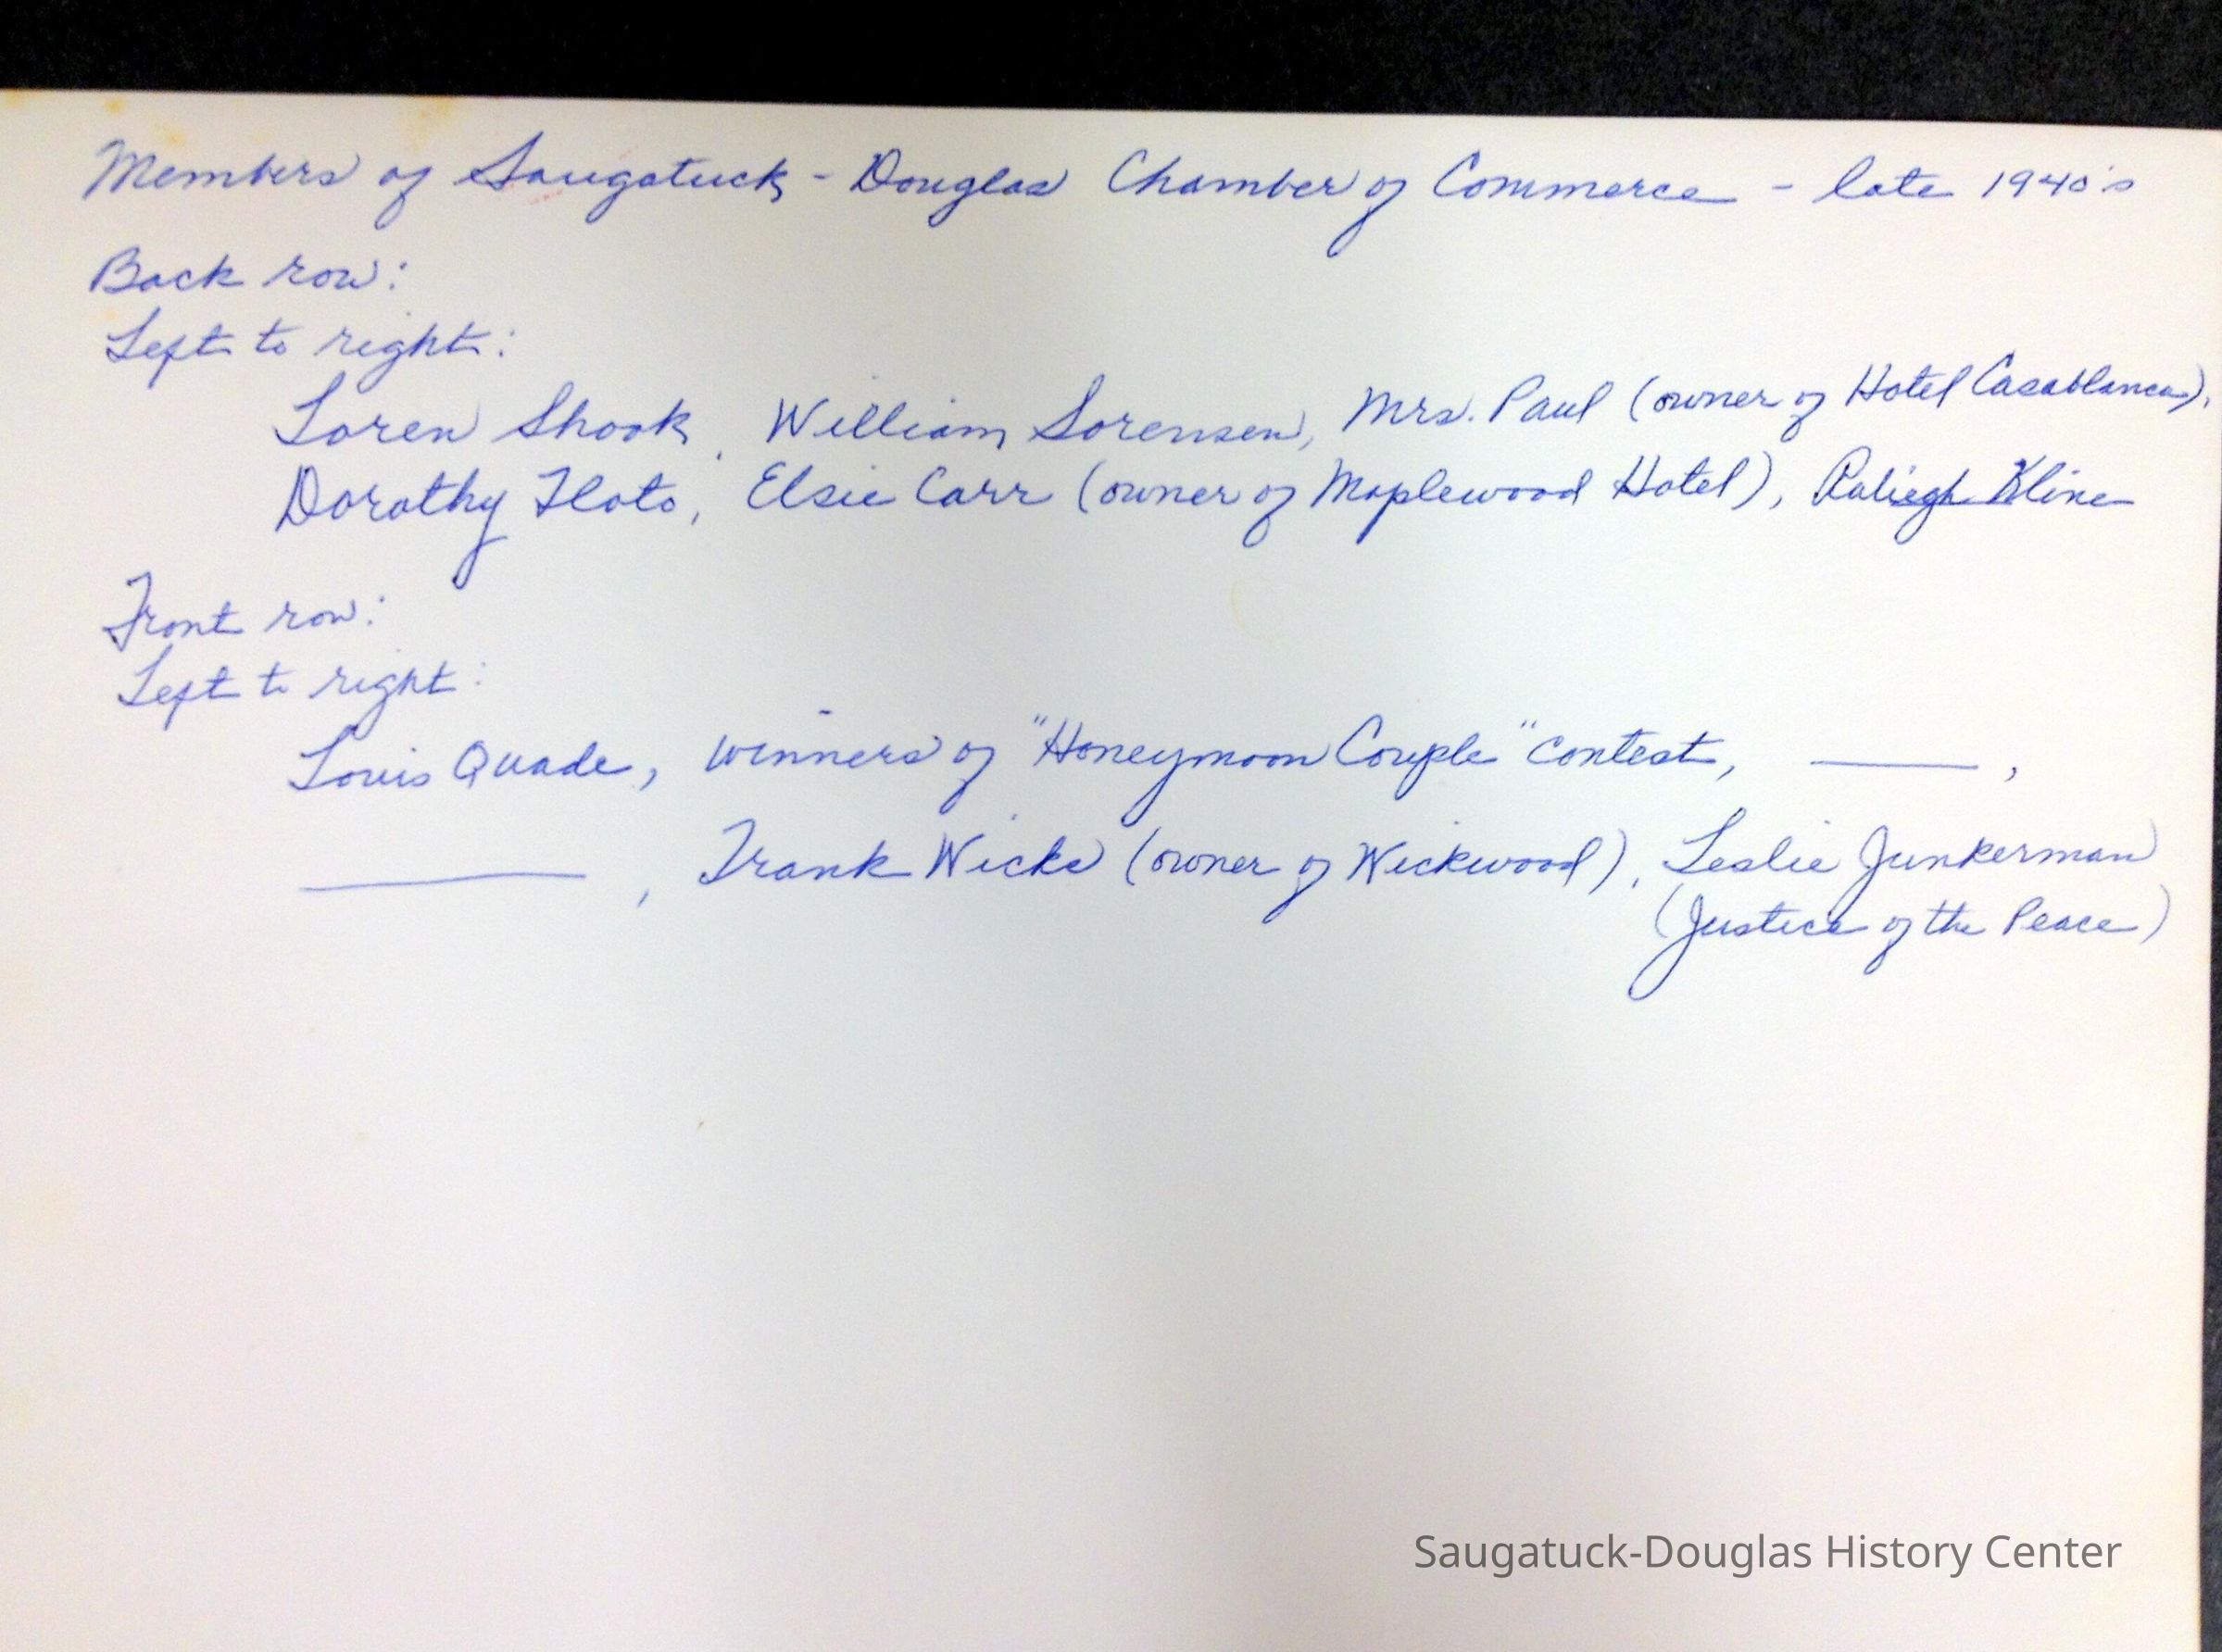 Members of Saugatuck - Douglas Chamber of Commerce - late 1940's
Back row:
Left to right:
Loren Shook, William Sorensen, Mrs. Paul (owner of Hotel Casablanca),
Dorothy Floto, Elsie Carr (owner of Maplewood Hotel), Raliegh Kline
Front row:
Left to right:
Louis Quade, winners of "Honeymoon Couple" contest, ———,
———, Frank Wicks (owner of Wickwood), Leslie Junkerman
(Justice of the Peace)
Saugatuck-Douglas History Center